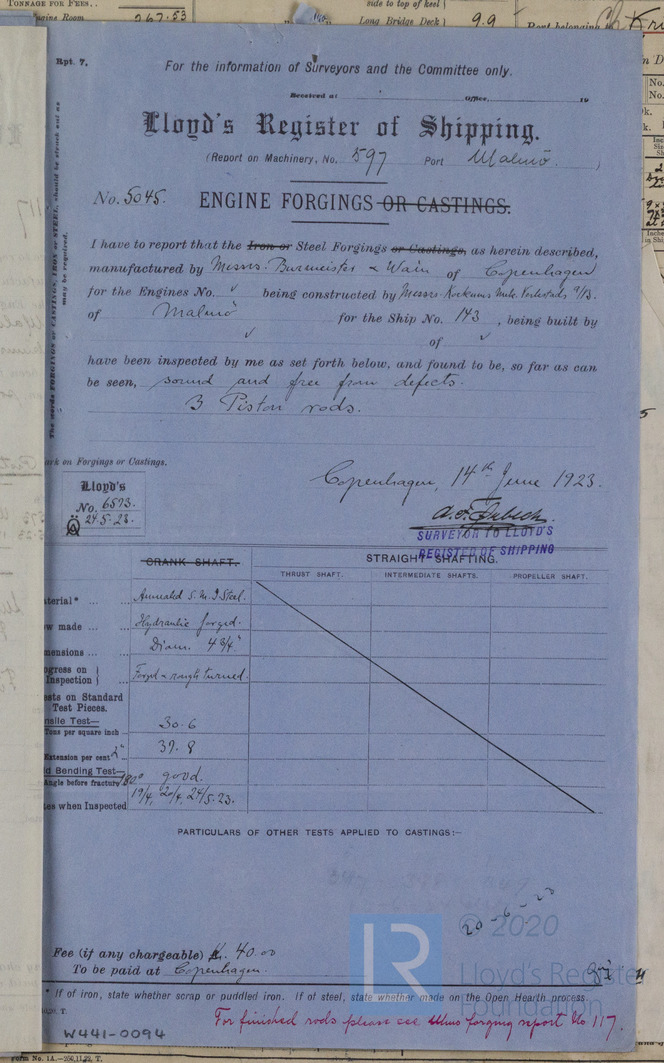 TONNAGE FOR FEES..
Engine Room 267.53
side to top of keel
Long Bridge Deck 9.9
Port belonging
Rpt. 7.
For the information of Surveyors and the Committee only.
Received at Office, 19
Lloyd's Register of Shipping.
(Report on Machinery, No. 597 Port Malmö.)
No. 5045.
ENGINE FORGINGS OR CASTINGS.
The words FORGINGS or CASTINGS, IRON or STEEL, should be struck out as may be required.
I have to report that the Iron or Steel Forgings or Castings, as herein described,
manufactured by Messrs. Burmeister & Wain of Copenhagen
for the Engines No. ✓ being constructed by Messrs. Kockums Mek. Verkstads A/B.
of Malmö for the Ship No. 143, being built by
✓ of ✓
have been inspected by me as set forth below, and found to be, so far as can
be seen, sound and free from defects.
3 Piston rods.
ark on Forgings or Castings.
Lloyd's
No. 6573.
24.5.23.
Copenhagen, 14th June 1923.
SURVEYOR TO LLOYD'S
REGISTER OF SHIPPING
CRANK SHAFT.
STRAIGHT SHAFTING.
THRUST SHAFT. INTERMEDIATE SHAFTS. PROPELLER SHAFT.
terial* ... Annealed S. M. I Steel.
w made ... Hydraulic forged.
mensions ... Diam. 4 3/4"
ogress on Inspection ... Forged & rough turned.
sts on Standard
Test Pieces.
nsile Test—
Tons per square inch 30.6
Extension per cent 2" 37.8
d Bending Test—
Angle before fracture 180° good.
es when Inspected 19/4, 20/4, 24/5.23.
PARTICULARS OF OTHER TESTS APPLIED TO CASTINGS:—
20-6-23
© 2020
Lloyd's Register
Foundation
Fee (if any chargeable) Kr. 40.00
To be paid at Copenhagen.
* If of iron, state whether scrap or puddled iron. If of steel, state whether made on the Open Hearth process
For finished rods please see forging report No 117.
W441-0094
Form No. 1A.—250,11,22, T.